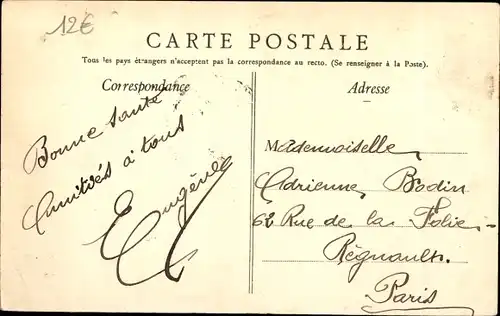 12€
CARTE POSTALE
Tous les pays étrangers n'acceptent pas la correspondance au recto. (Se renseigner à la Poste).
Correspondance
Bonne santé
Amitiés à tous
Eugène
Adresse
Mademoiselle
Adrienne Bodin
62 Rue de la Folie
Régnault
Paris